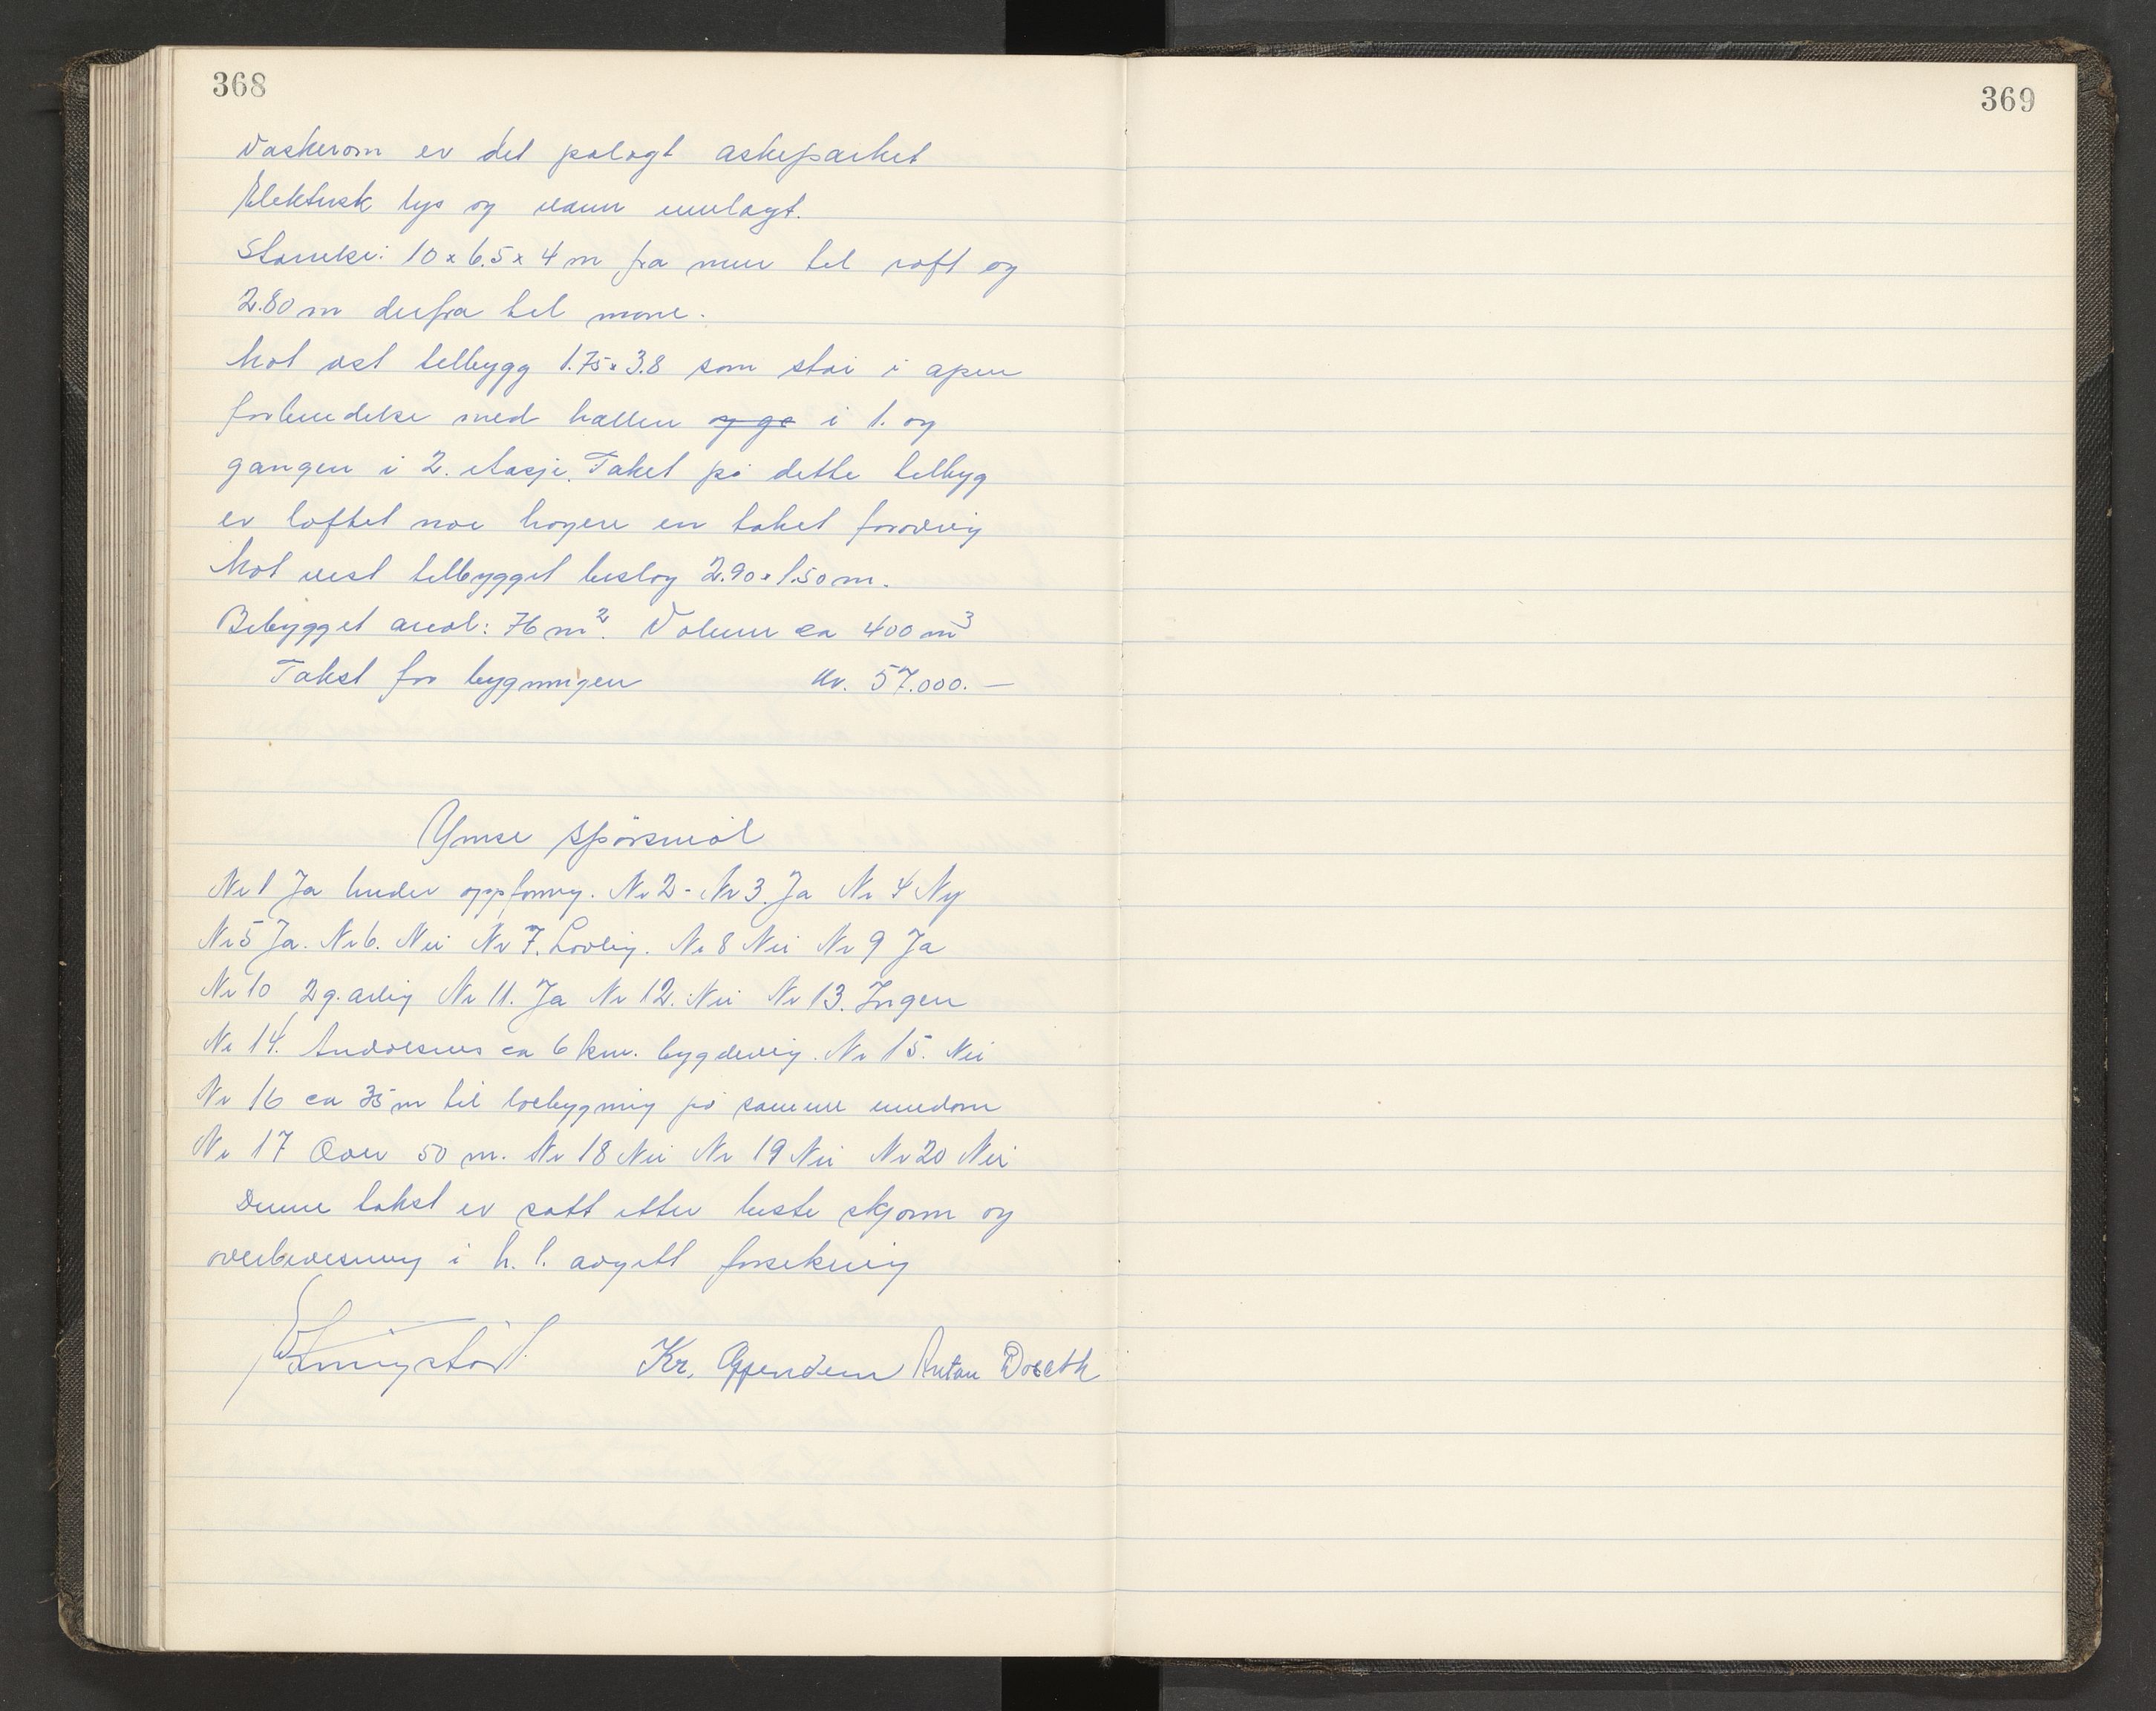 368
369
Vaskerom er det pålagt askeparket
Elektrisk lys og vann innlagt.
Størrelse: 10 x 6.5 x 4 m fra mur til raft og
2.80 m derfra til møne.
Mot øst tilbygg 1.75 x 3.8 som står i åpen
forbindelse med hallen og ga i 1. og
gangen i 2. etasje. Taket på dette tilbyg
er løftet noe høyere en taket forøvrig
Mot vest tilbygget bislag 2.90 x 1.50 m.
Bebygget areal: 76 m². Volum ca 400 m³
Takst for bygningen kr. 57.000.—
Ymse spörsmål
Nr 1 Ja under oppföring. Nr 2 - Nr 3. Ja Nr 4 Ny
Nr 5 Ja. Nr 6. Nei Nr 7. Lovlig. Nr 8 Nei Nr 9 Ja
Nr 10 2 g. årlig Nr 11. Ja Nr 12. Nei Nr 13. Ingen
Nr 14. Åndalsnes ca 6 km. bygdeveg. Nr 15. Nei
Nr 16 ca 35 m til löebygning på samme eiendom
Nr 17 Over 50 m. Nr 18 Nei Nr 19 Nei Nr 20 Nei
Denne takst er satt etter beste skjønn og
overbevisning i h. t. avgitt forsikring
Kr. Appendem Anton Doseth